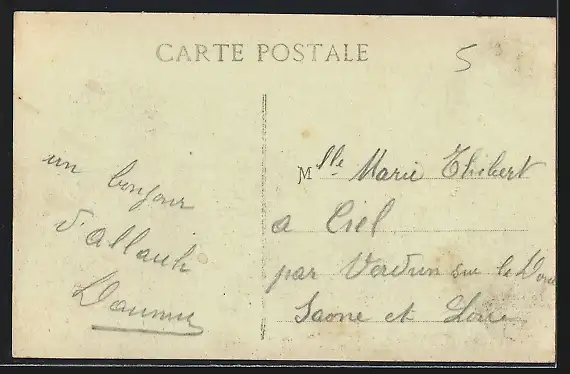 CARTE POSTALE
5
un bonjour
d'allauch
Mlle Marie Thibert
a Ciel
par Verdun sur le Doubs
Saone et Loire